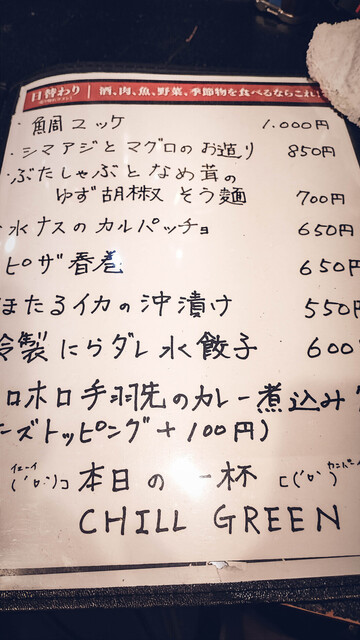 日替わり 酒、肉、魚、野菜、季節物を食べるならこれ!
・鯛ユッケ 1.000円
・シマアジとマグロのお造り 850円
・ぶたしゃぶとなめ茸の
ゆず胡椒そう麺 700円
水ナスのカルパッチョ 650円
ピザ春巻 650円
ほたるイカの沖漬け 550円
冷製にらダレ水餃子 600
ロホロ手羽先のカレー煮込み
ーズトッピング+100円)
イェーイ カンパーイ
('ロ')コ 本日の一杯 ㄷ('ロ')
CHILL GREEN